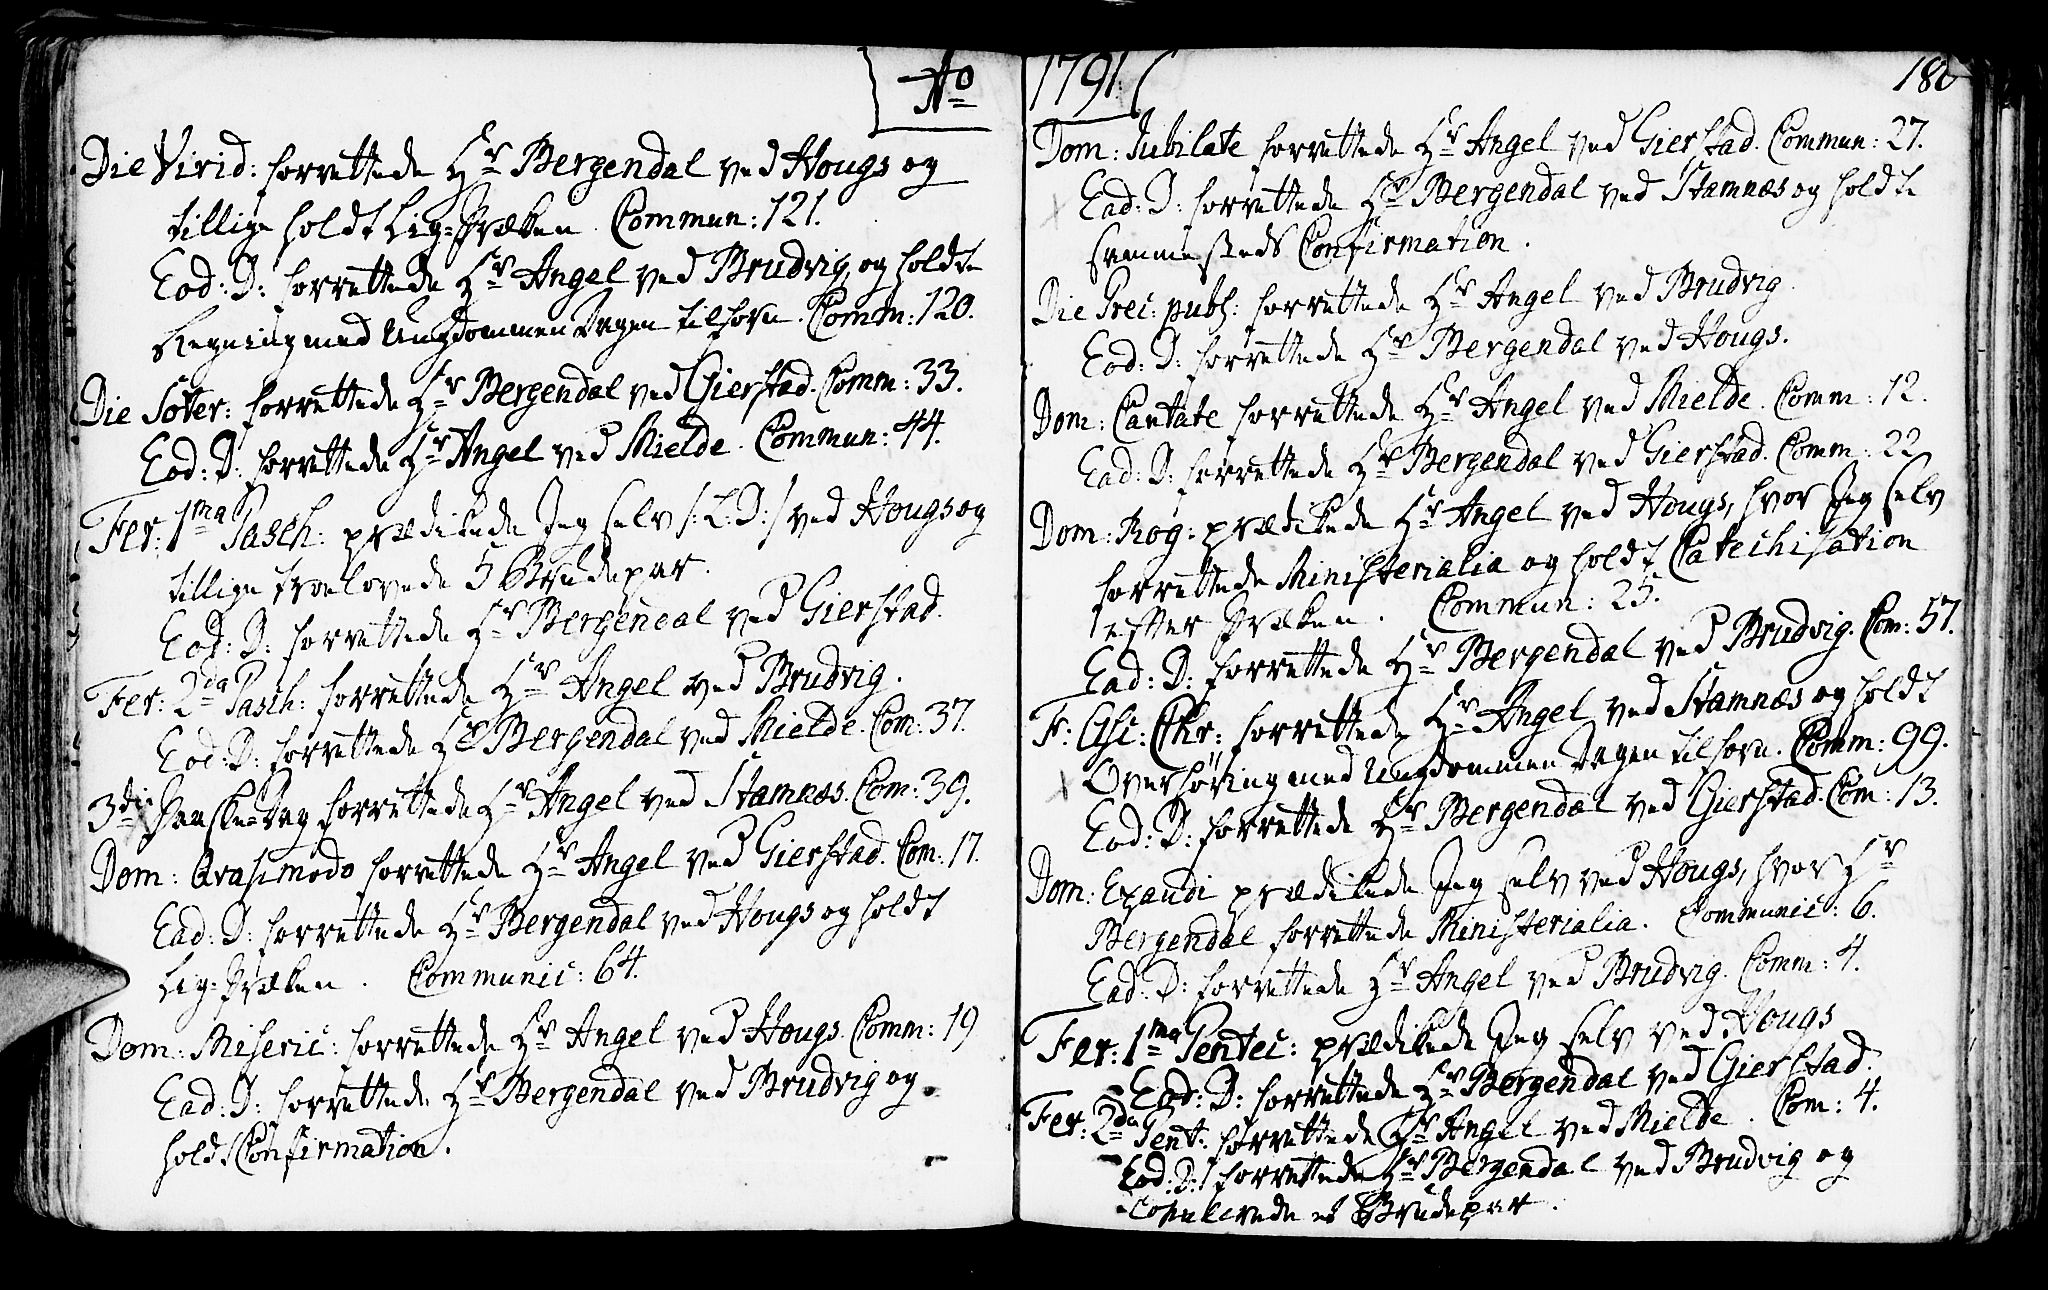 Ao
Die Virid: forrettede Hr Bergendal ved Hougs og
tillige holdt Lig-Præken. Commun: 121.
Eod: D: forrettede Hr Angel ved Brudvig, og holdte
Regning med Ungdommen Dagen tilforn. Comm: 120.
Die Soter: forrettede Hr Bergendal ved Gierstad. Comm: 33.
Eod: D: forrettede Hr Angel ved Mielde. Commun: 44.
Fer: 1ma Pasch: prædikede Jeg selv /: L: D: / ved Hougs og
tillige troelovede 5 Brudepar.
Eod: D: forrettede Hr Bergendal ved Gierstad.
Fer: 2da Pasch: forrettede Hr Angel ved Brudvig.
Eod: D: forrettede Hr Bergendal ved Mielde. Com: 37.
3die Paaske-Dag forrettede Hr Angel ved Stamnæs. Com: 39.
Dom: Qvasimodo forrettede Hr Angel ved Gierstad. Com: 17.
Ead: D: forrettede Hr Bergendal ved Hougs og holdt
Lig-Præken. Communic: 64.
Dom: Miseric: forrettede Hr Angel ved Hougs. Comm: 19
Ead: D: forrettede Hr Bergendal ved Brudvig og
holdt Confirmation.
1791
180
Dom: Jubilate forrettede Hr Angel ved Gierstad. Commun: 27.
Ead: D: forrettede Hr Bergendal ved Stamnæs og holdte
sammesteds Confirmation.
Die Prec: publ: forrettede Hr Angel ved Brudvig.
Eod: D: forrettede Hr Bergendal ved Hougs.
Dom: Cantate forrettede Hr Angel ved Mielde. Comm: 12.
Ead: D: forrettede Hr Bergendal ved Gierstad. Comm: 22
Dom: Rog: prædikede Hr Angel ved Hougs, hvor Jeg selv
forrettede Ministerialia og holdt Catechisation
efter Præken. Commun: 25.
Ead: D: forrettede Hr Bergendal ved Brudvig. Com: 57.
F: Asc: Chr: forrettede Hr Angel ved Stamnæs og holdt
Overhøring med Ungdommen Dagen tilforn. Comm: 99.
Eod: D: forrettede Hr Bergendal ved Gierstad. Com: 13.
Dom: Exaudi prædikede Jeg selv ved Hougs, hvor Hr
Bergendal forrettede Ministerialia. Communic: 6.
Ead: D: forrettede Hr Angel ved Brudvig. Comm: 4.
Fer: 1ma Pentec: prædikede Jeg selv ved Hougs
Eod: D: forrettede Hr Bergendal ved Gierstad.
Fer: 2da Pent: forrettede Hr Angel ved Mielde. Com: 4.
Eod: D: forrettede Hr Bergendal ved Brudvig og
Copulerede et Brudepar.